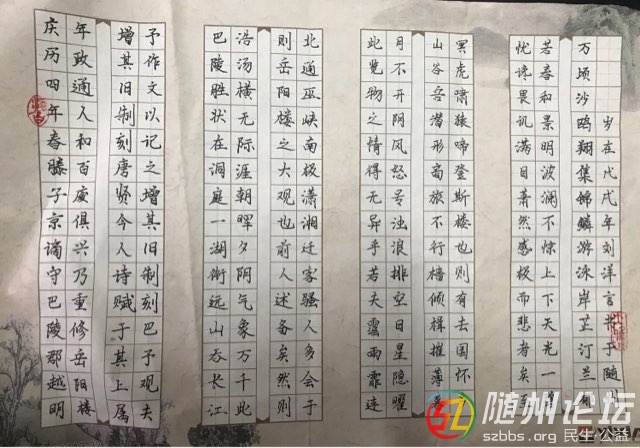 庆历四年春滕子京谪守巴陵郡越明
年政通人和百废俱兴乃重修岳阳楼
增其旧制刻唐贤今人诗赋于其上属
予作文以记之增其旧制刻巴予观夫
巴陵胜状在洞庭一湖衔远山吞长江
浩汤横无际涯朝晖夕阴气象万千此
则岳阳楼之大观也前人述备矣然则
北通巫峡南极潇湘迁客骚人多会于
此览物之情得无异乎若夫霪雨霏连
月不开阴风怒号浊浪排空日星隐曜
山岳潜形商旅不行樯倾楫摧薄暮
冥虎啸猿啼登斯楼也则有去国怀
忧谗畏讥满目萧然感极而悲者矣至
若春和景明波澜不惊上下天光一
万顷沙鸥翔集锦鳞游泳岸芷汀兰
岁在戊戌年刘洋言书于随
随州论坛
szbbs.org 民生公益